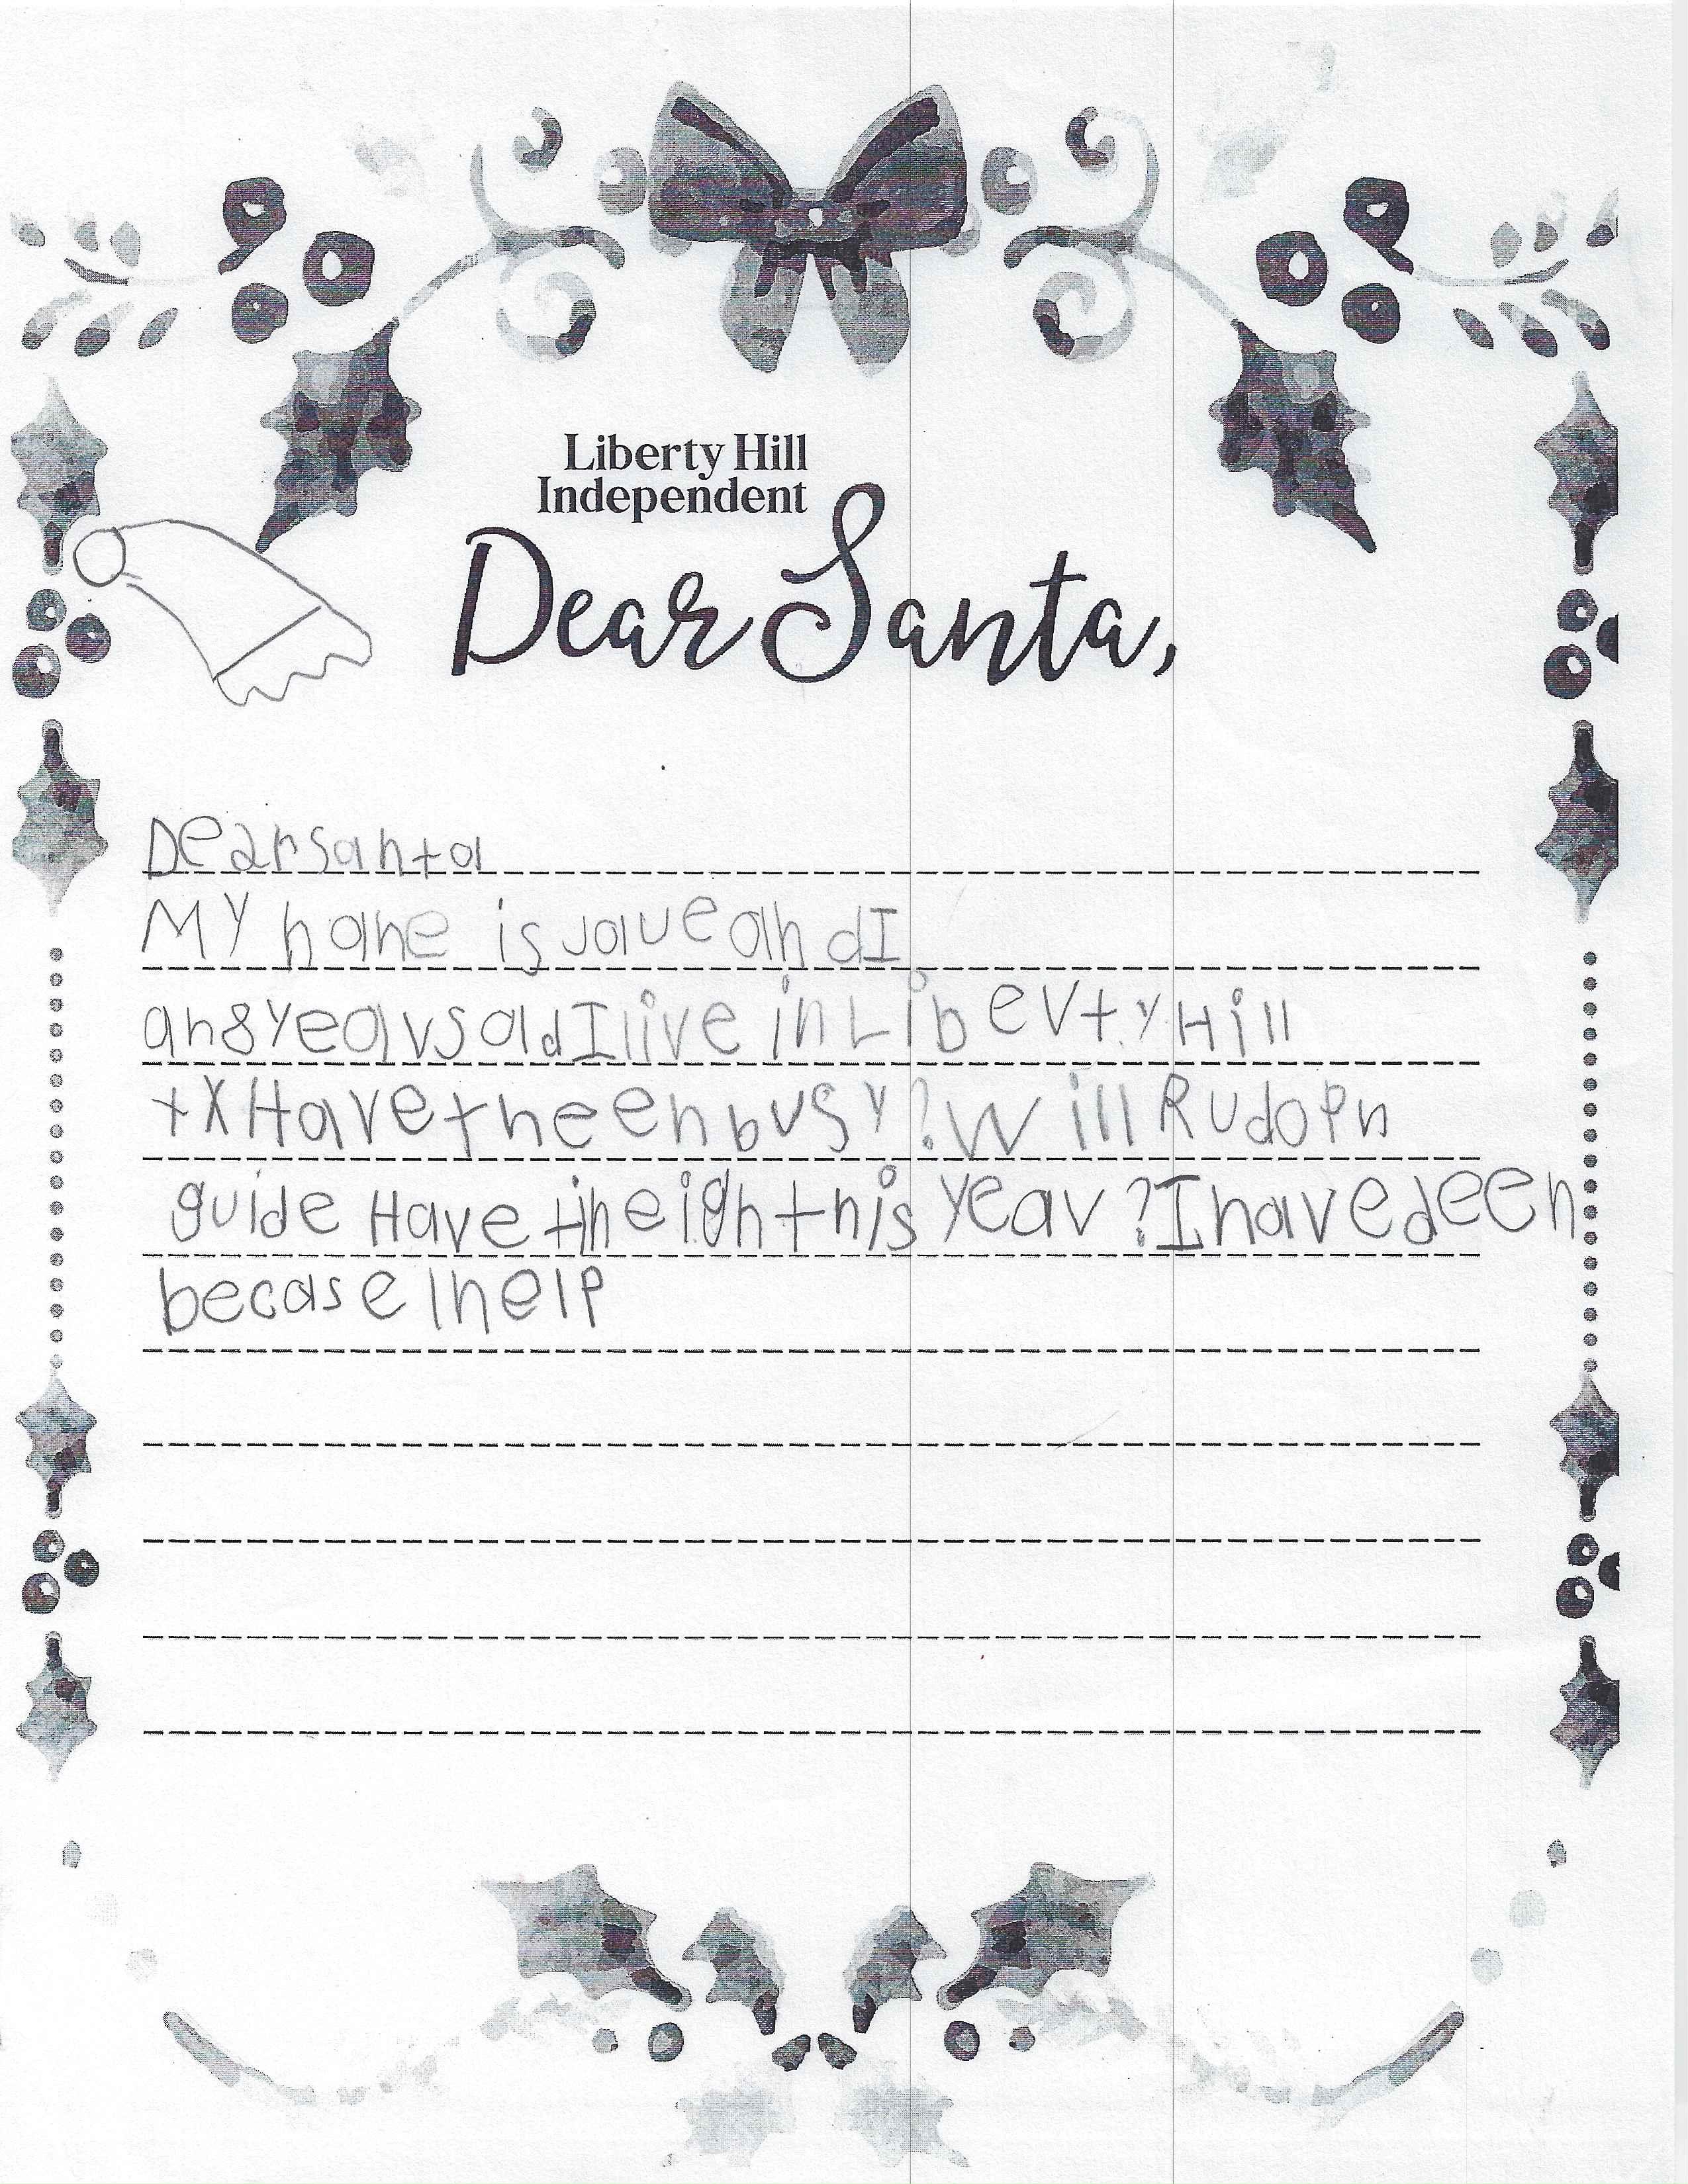 Liberty Hill
Independent
Dear Santa,
Dear santa
My name is Jave and I
an 8 years old I live in Liberty Hill
tX Have the een busy? Will Rudoph
guide Have tihe ight this year? I have deen
becase I help